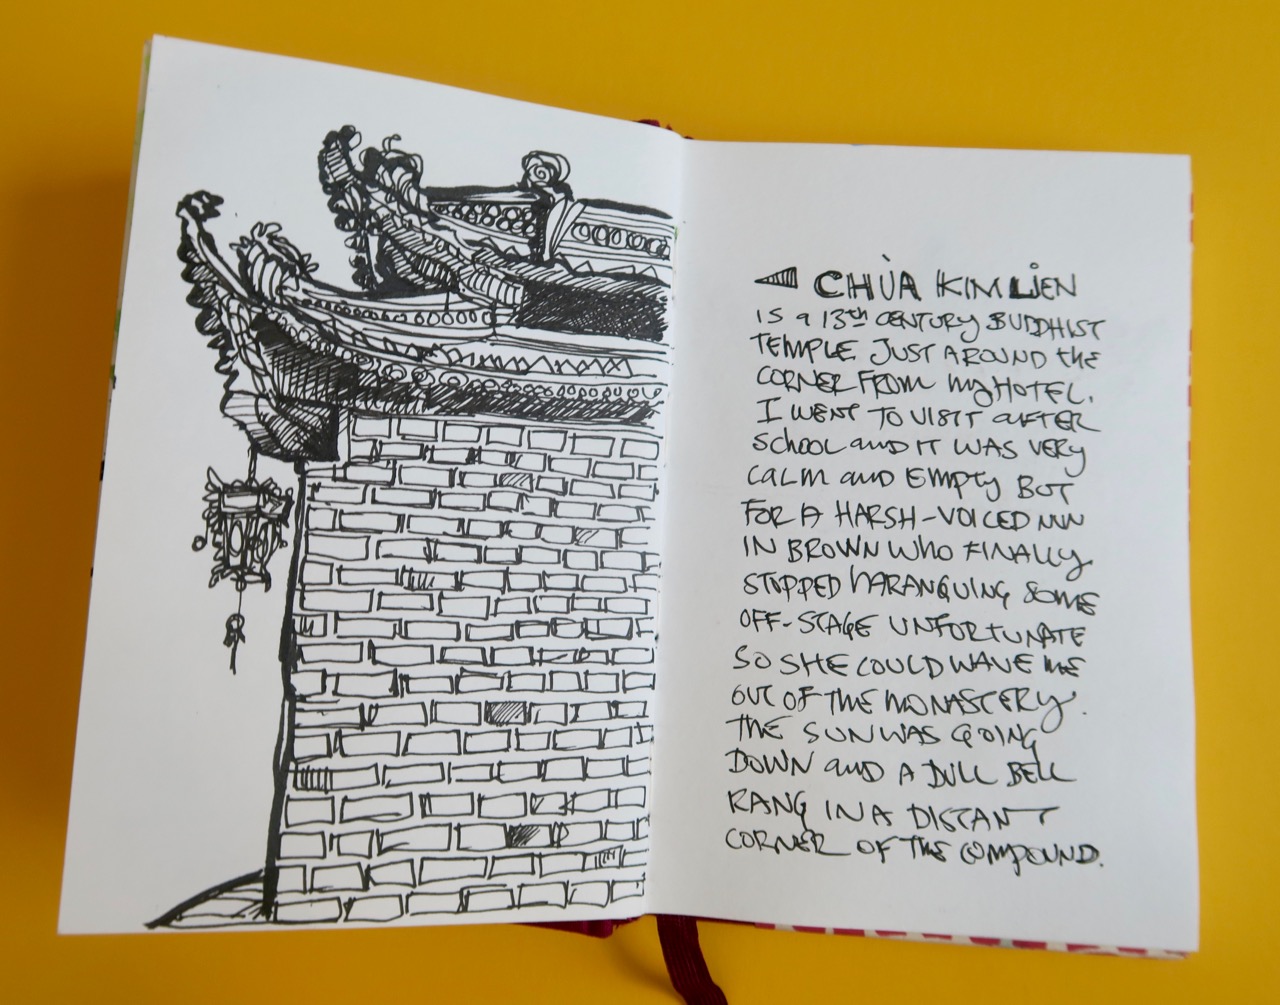 CHÙA KIM LIEN
IS A 13th CENTURY BUDDHIST
TEMPLE JUST AROUND the
CORNER FROM my HOTEL.
I WENT TO VISIT AFTER
School and IT WAS VERY
CALM and EMPTY BUT
FOR A HARSH-VOICED NUN
IN BROWN WHO FINALLY
STOPPED HARANGUING SOME
OFF-STAGE UNFORTUNATE
SO SHE COULD WAVE ME
OUT OF THE MONASTERY.
THE SUN WAS GOING
DOWN and A DULL BELL
RANG IN A DISTANT
CORNER OF THE COMPOUND.